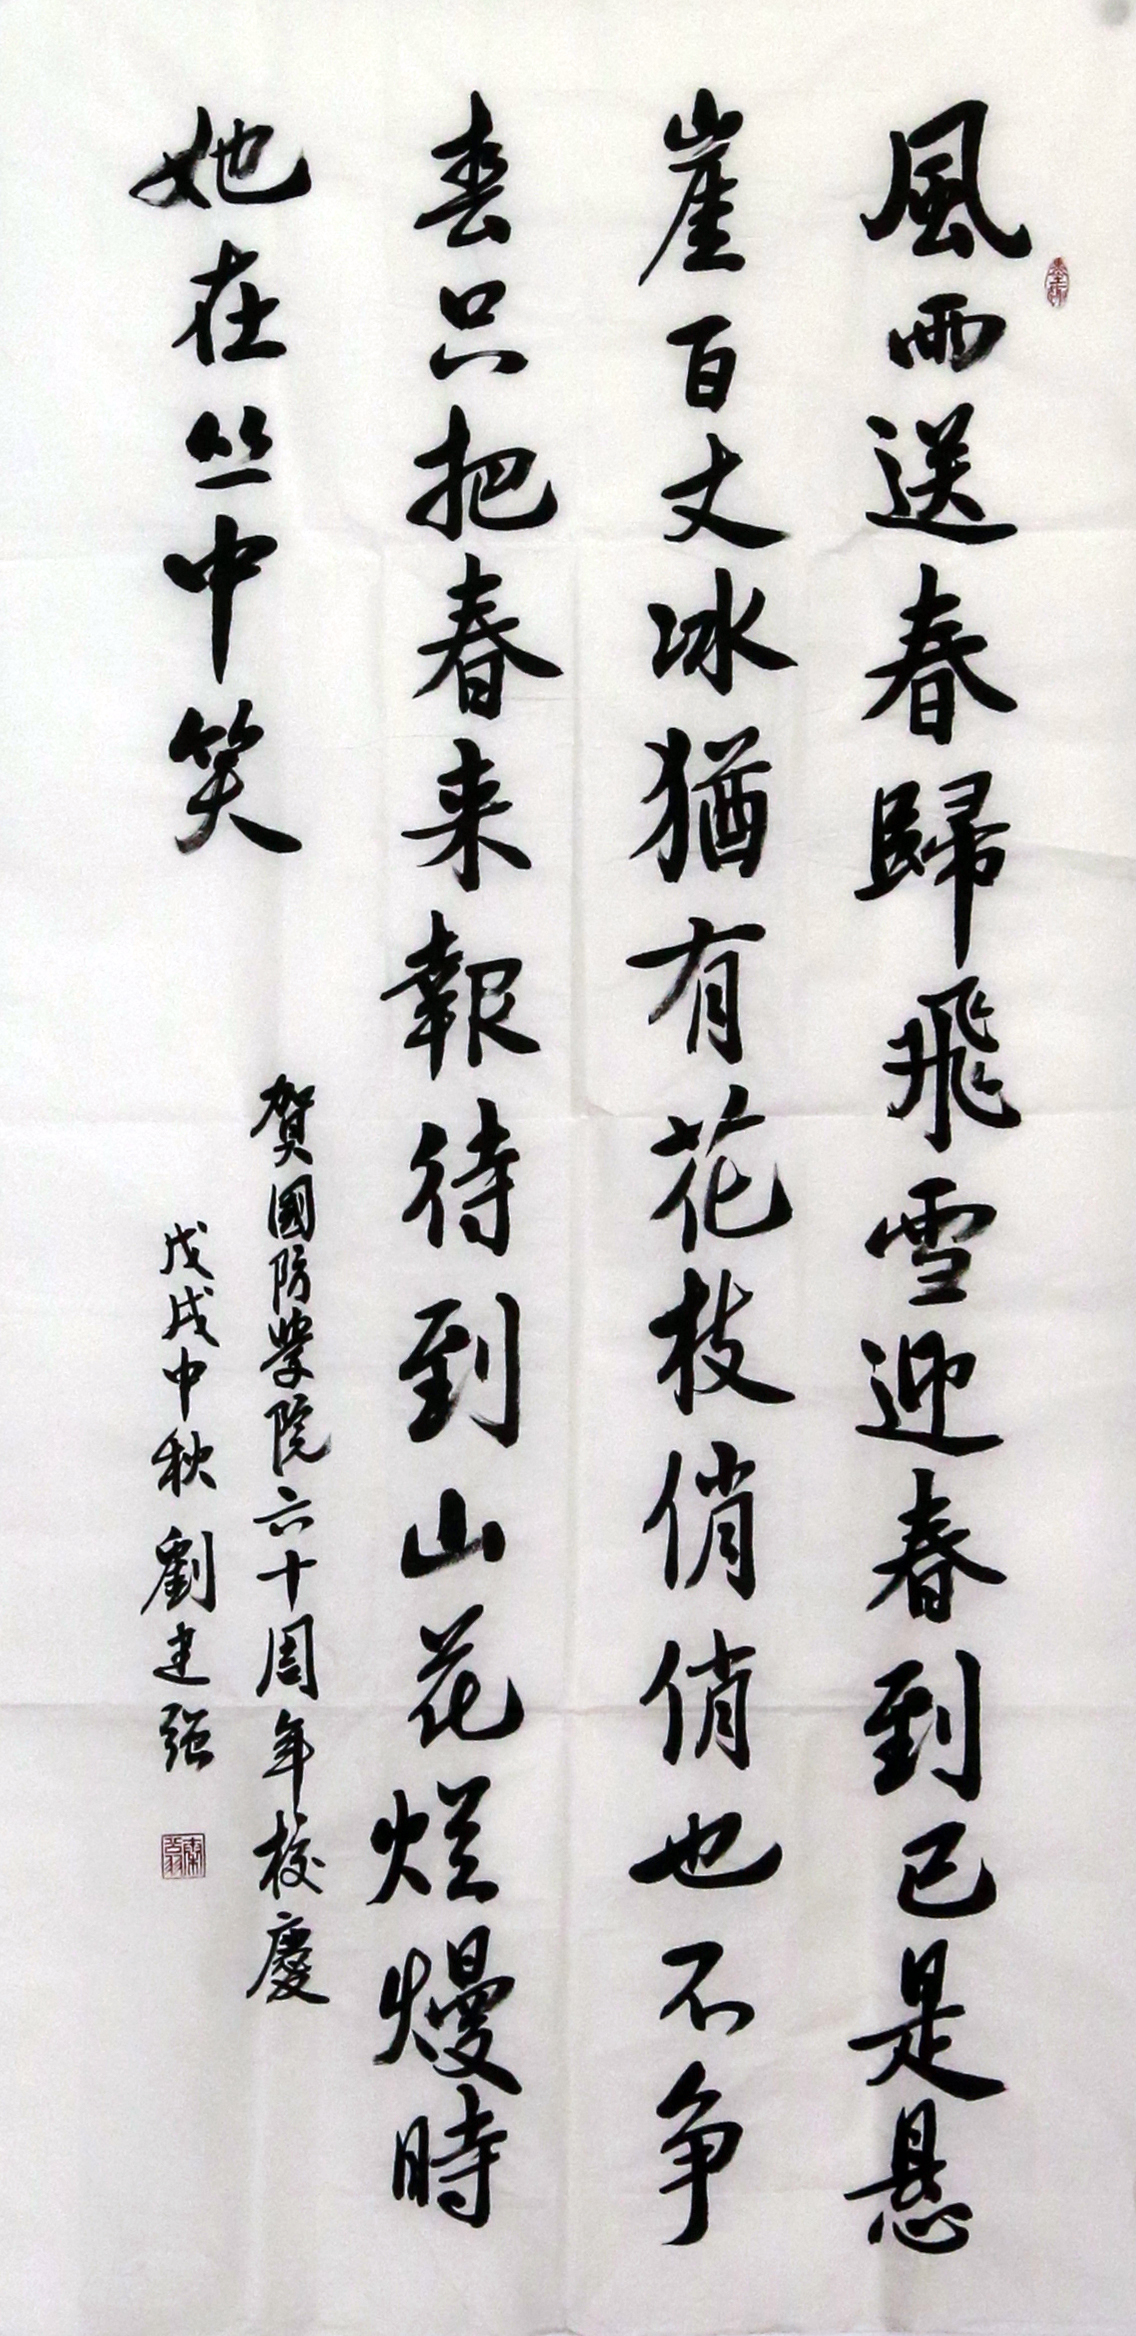 風雨送春歸飛雪迎春到已是懸
崖百丈冰猶有花枝俏俏也不争
春只把春来報待到山花烂熳時
她在丛中笑
贺國防學院六十周年校慶
戊戌中秋劉建强